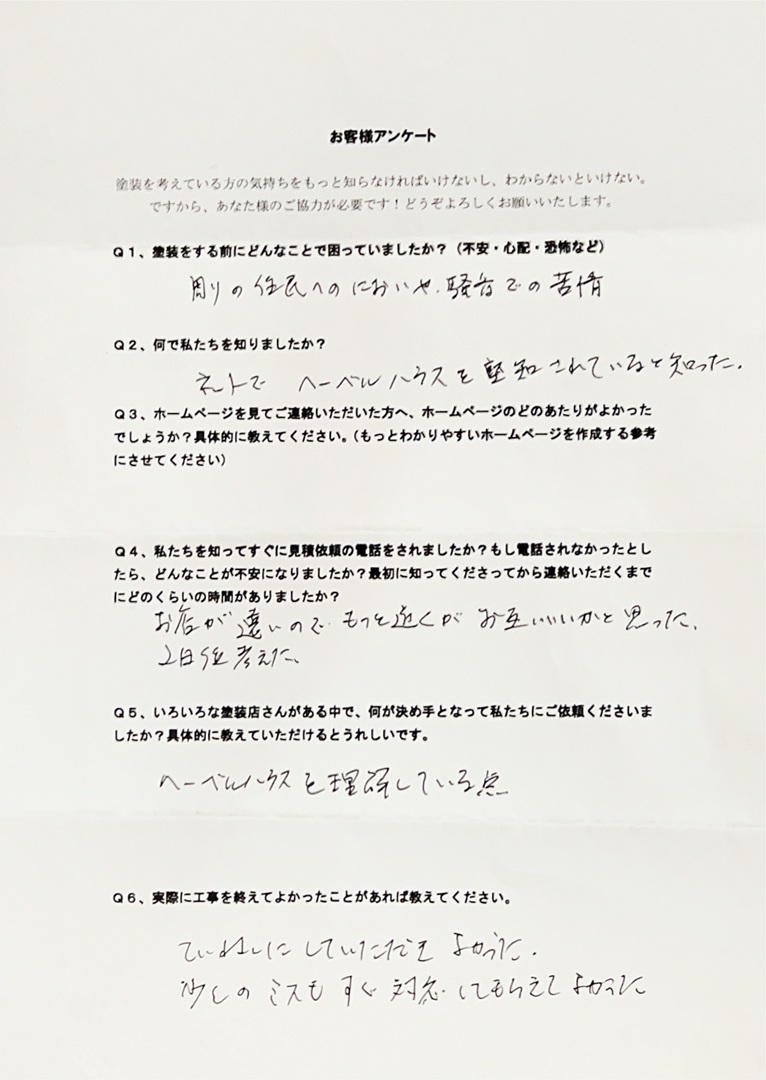 お客様アンケート
塗装を考えている方の気持ちをもっと知らなければいけないし、わからないといけない。
ですから、あなた様のご協力が必要です！どうぞよろしくお願いいたします。
Q１、塗装をする前にどんなことで困っていましたか？（不安・心配・恐怖など）
周りの住民へのにおいや、騒音での苦情
Q２、何で私たちを知りましたか？
ネットで ヘーベルハウスを熟知されていると知った。
Q３、ホームページを見てご連絡いただいた方へ、ホームページのどのあたりがよかった
でしょうか？具体的に教えてください。（もっとわかりやすいホームページを作成する参考
にさせてください）
Q４、私たちを知ってすぐに見積依頼の電話をされましたか？もし電話されなかったとし
たら、どんなことが不安になりましたか？最初に知ってくださってから連絡いただくまで
にどのくらいの時間がありましたか？
お店が遠いので、もっと近くが お互いいいかと思った、
2日位考えた、
Q５、いろいろな塗装店さんがある中で、何が決め手となって私たちにご依頼くださいま
したか？具体的に教えていただけるとうれしいです。
ヘーベルハウスを理解している点
Q６、実際に工事を終えてよかったことがあれば教えてください。
ていねいにしていただき よかった。
少しのミスも すぐ 対応してもらえて よかった